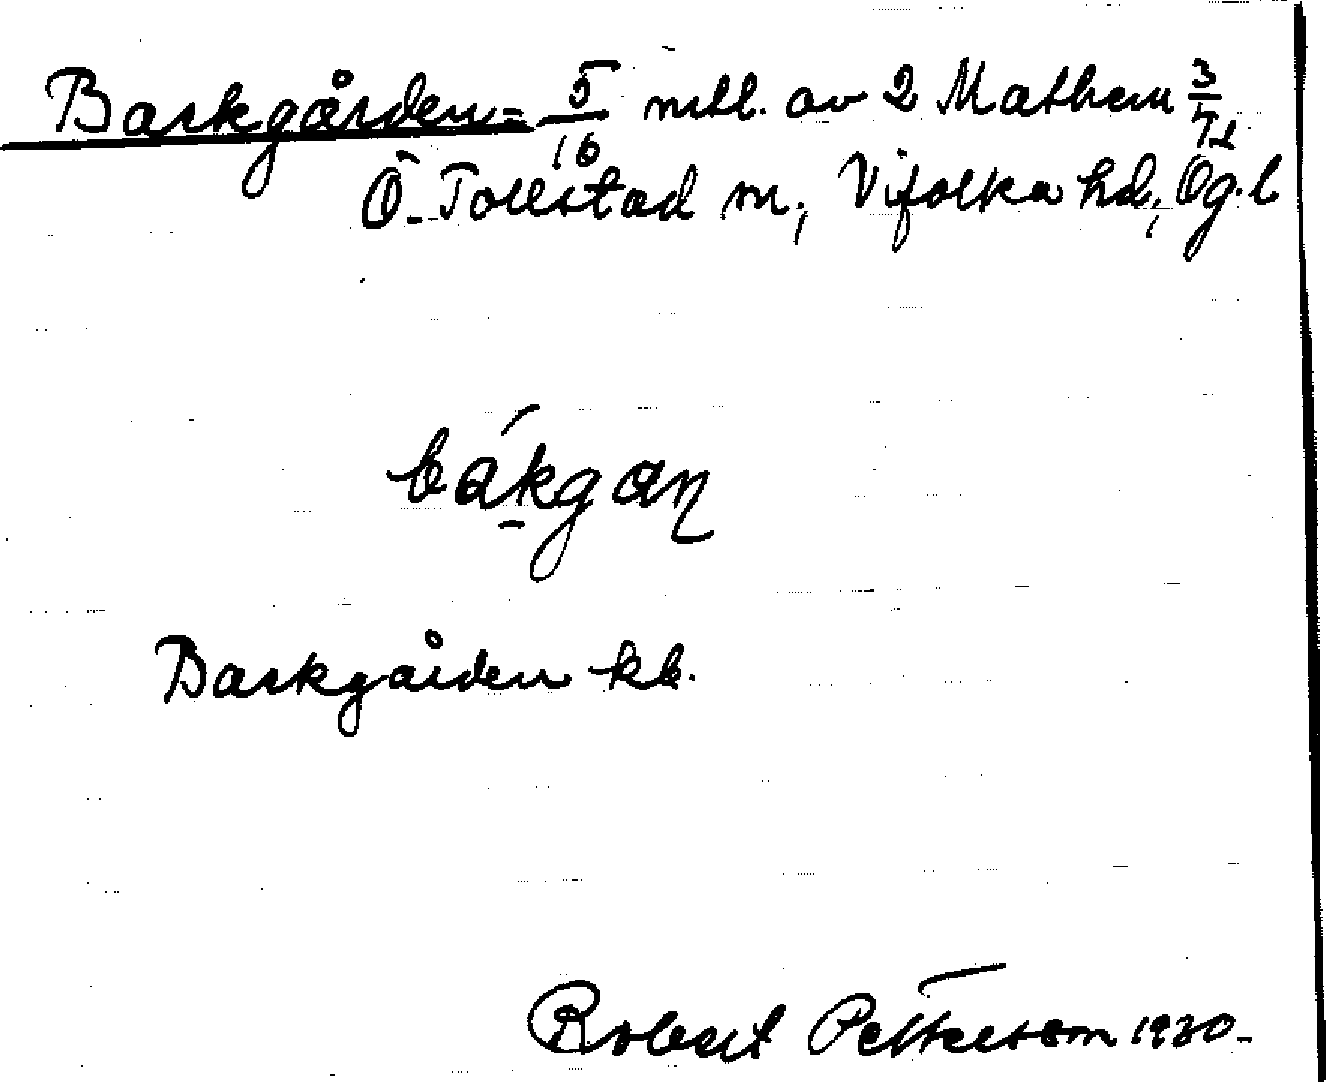 Backgården = 5/16 mtl. av 2 Mathem 3/72
Ö. Tollstad sn, Vifolka hd, Ög. l
bákgaɳ
Backgården kb.
Robert Petterson 1930.